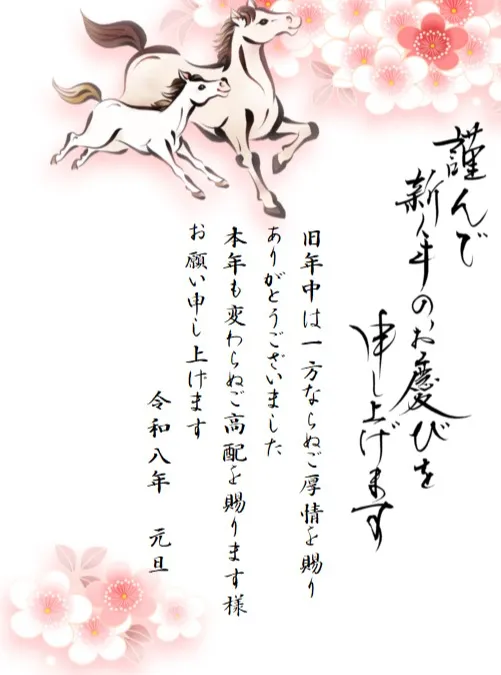 謹んで
新年のお慶びを
申し上げます
旧年中は一方ならぬご厚情を賜り
ありがとうございました
本年も変わらぬご高配を賜ります様
お願い申し上げます
令和八年 元旦